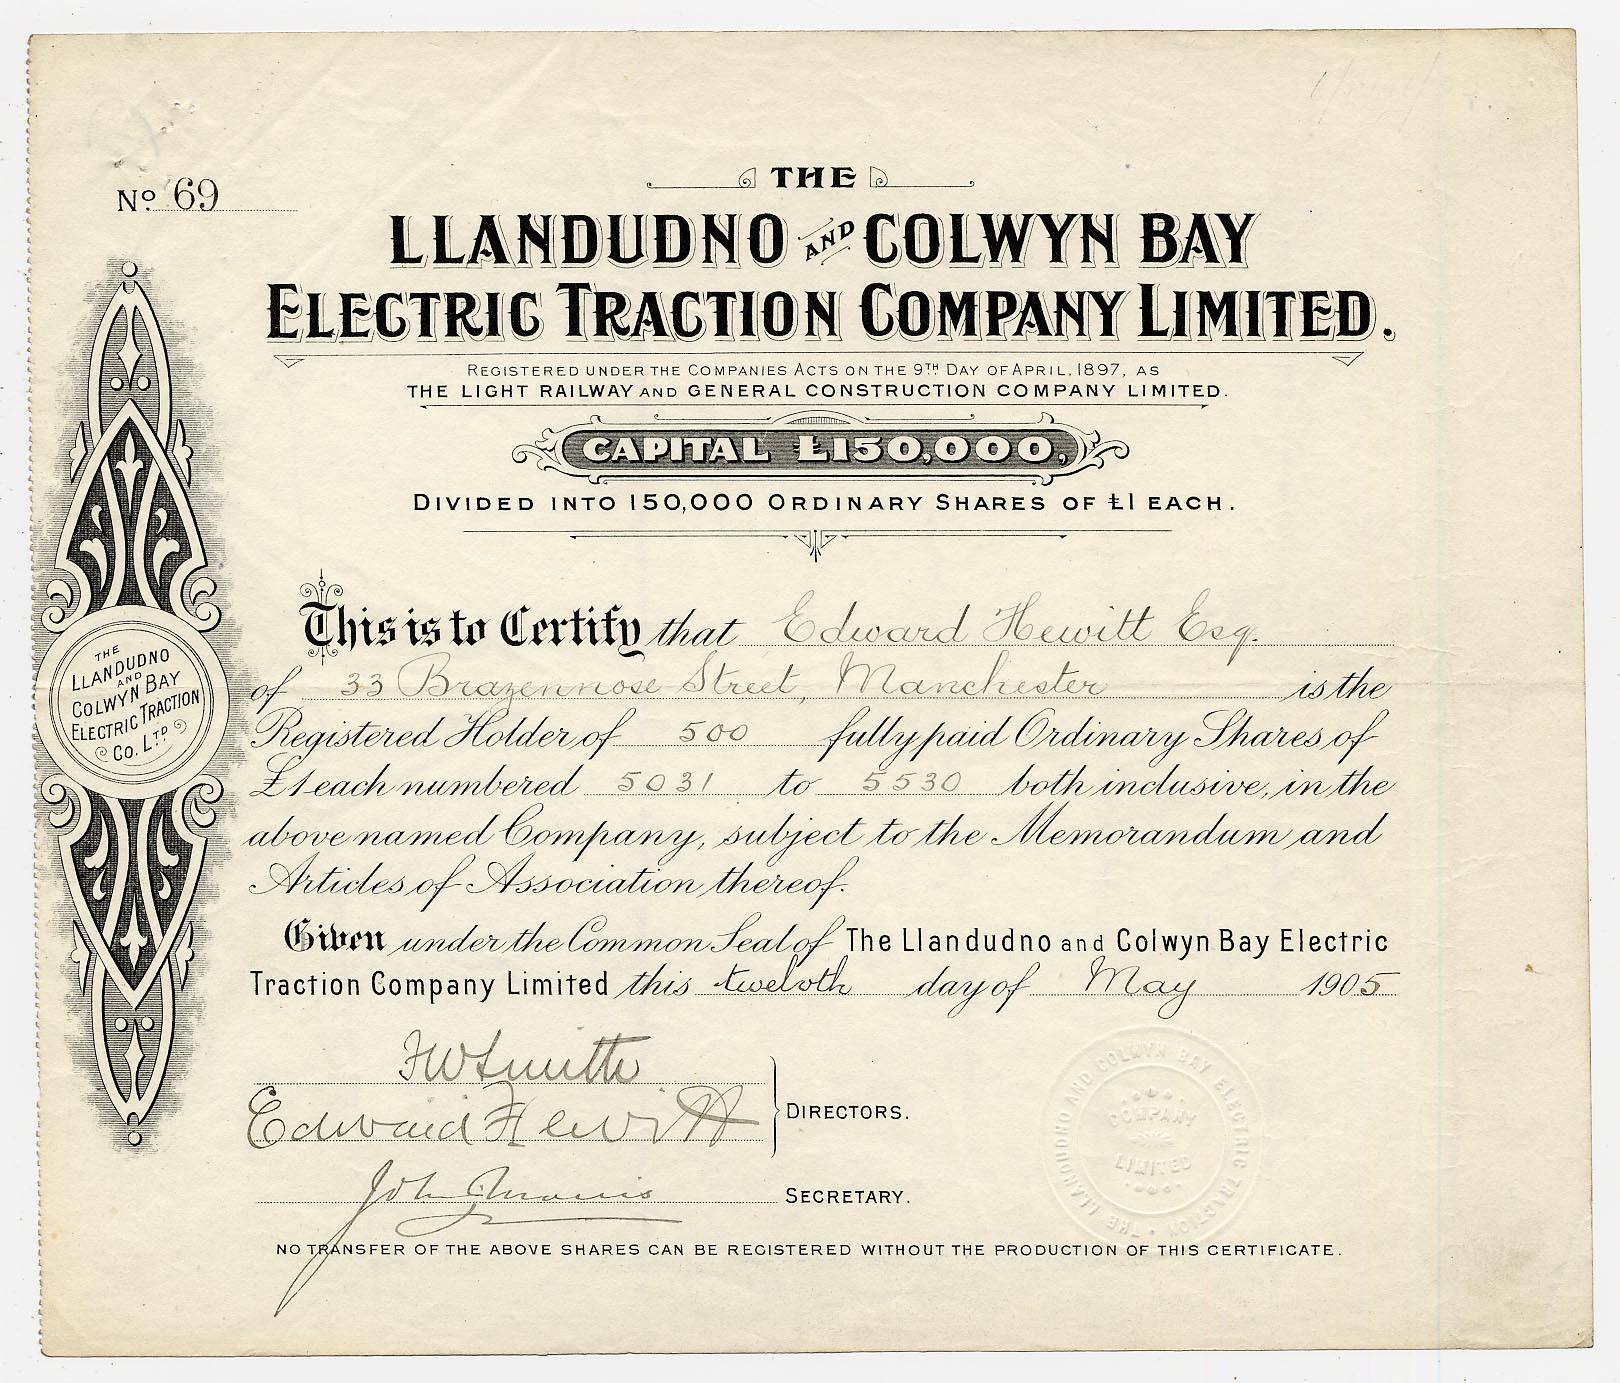 No 69
THE
LLANDUDNO AND COLWYN BAY
ELECTRIC TRACTION COMPANY LIMITED.
REGISTERED UNDER THE COMPANIES ACTS ON THE 9TH DAY OF APRIL, 1897, AS
THE LIGHT RAILWAY AND GENERAL CONSTRUCTION COMPANY LIMITED.
CAPITAL £150,000,
DIVIDED INTO 150,000 ORDINARY SHARES OF £1 EACH.
This is to Certify that Edward Hewitt Esq.
of 33 Brazennose Street, Manchester is the
Registered Holder of 500 fully paid Ordinary Shares of
£1 each numbered 5031 to 5530 both inclusive, in the
above named Company, subject to the Memorandum and
Articles of Association thereof.
Given under the Common Seal of The Llandudno and Colwyn Bay Electric
Traction Company Limited this twelvth day of May 1905
FW Smith
Edward Hewitt
DIRECTORS.
John Morris
SECRETARY.
NO TRANSFER OF THE ABOVE SHARES CAN BE REGISTERED WITHOUT THE PRODUCTION OF THIS CERTIFICATE.
THE
LLANDUDNO
AND
COLWYN BAY
ELECTRIC TRACTION
CO. LTD
THE LLANDUDNO AND COLWYN BAY ELECTRIC TRACTION
COMPANY
LIMITED